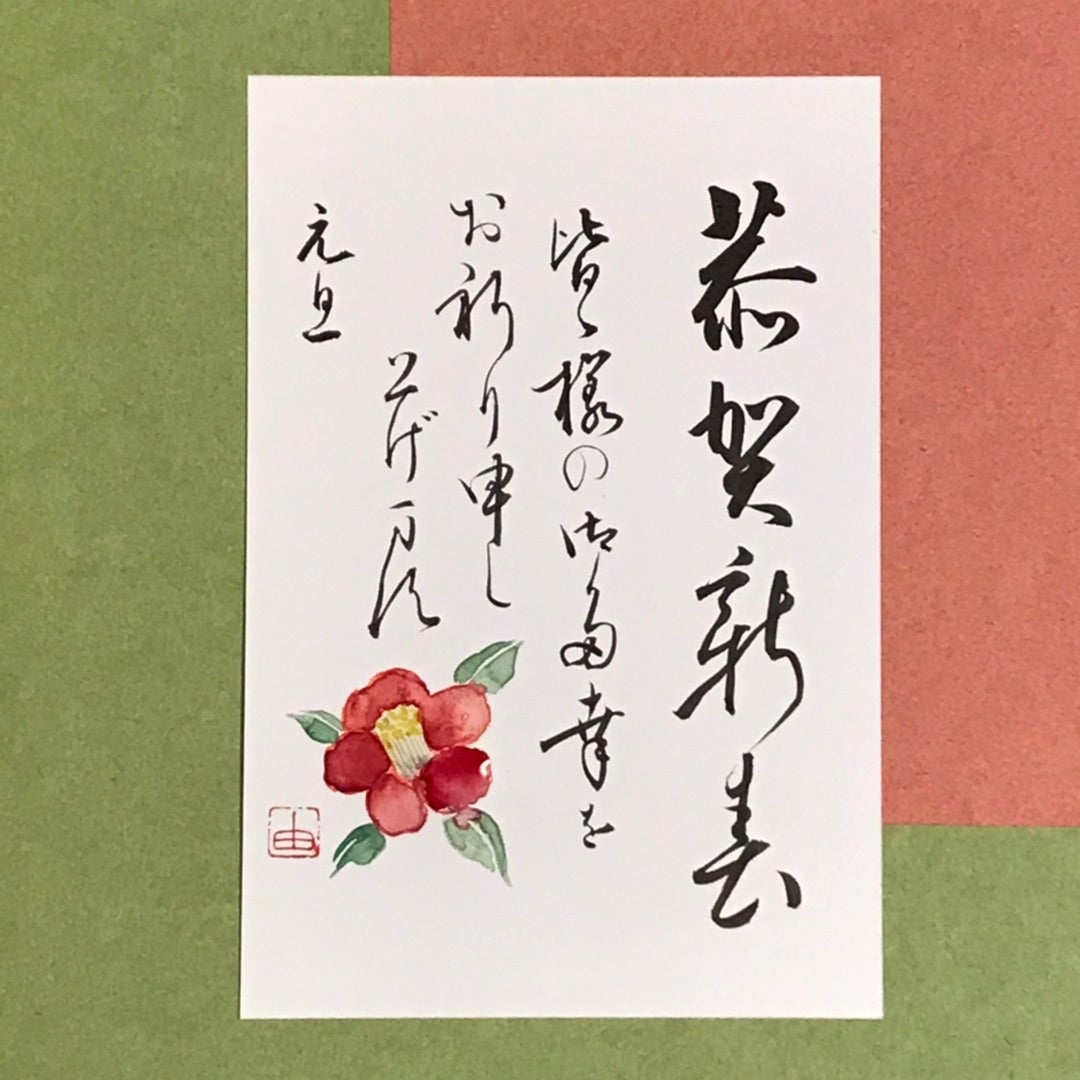 恭賀新春
皆々様の御多幸を
お祈り申し
上げます
元旦
由